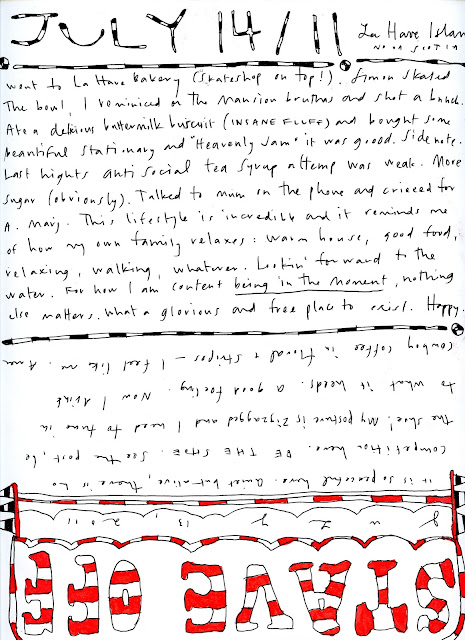 JULY 14/11
La Have Islan
NOVA SCOTIA
went to La Have Bakery (skateshop on top!). Simon skated
The bowl, I reminiced on the Mansion bruthas and shot a bunch.
Ate a delicious buttermilk buiscuit (INSANE FLUFF) and bought some
beautiful stationary and "Heavenly Jam" it was goood. Sidenote.
Last nights anti social tea syrup attemp was weak. More
sugar (obviously). Talked to mum on the phone and crieeed for
A. Marj. This lifestyle is incredible and it reminds me
of how my own family relaxes: warm house, good food,
relaxing, walking, whatever. Lookin' forward to the
water. For how I am content being in the moment, nothing
else matters. What a glorious and free place to exist. Happy.
STAVE OFF
July 13, 2011
it is so peaceful here. Quiet but native, there is no
competition here. BE THE SITE. See the post, be
the shoe! My posture is zigzagged and I need to tune in
to what it needs. A good feeling. Now I drink
cowboy coffee in floral + stripes — I feel like an Amer